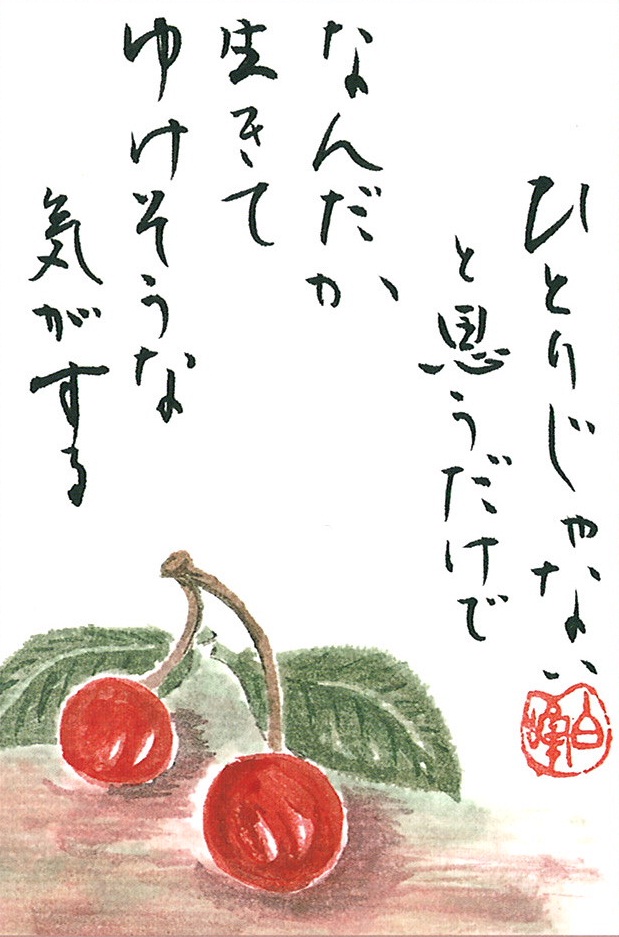 ひとりじゃない
と思うだけで
なんだか
生きて
ゆけそうな
気がする